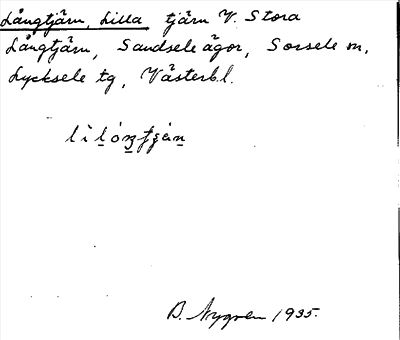 Långtjärn, Lilla tjärn V. Stora
Långtjärn, Sandsele ägor, Sorsele sn,
Lycksele tg, Västerb.l.
B. Nygren 1935.